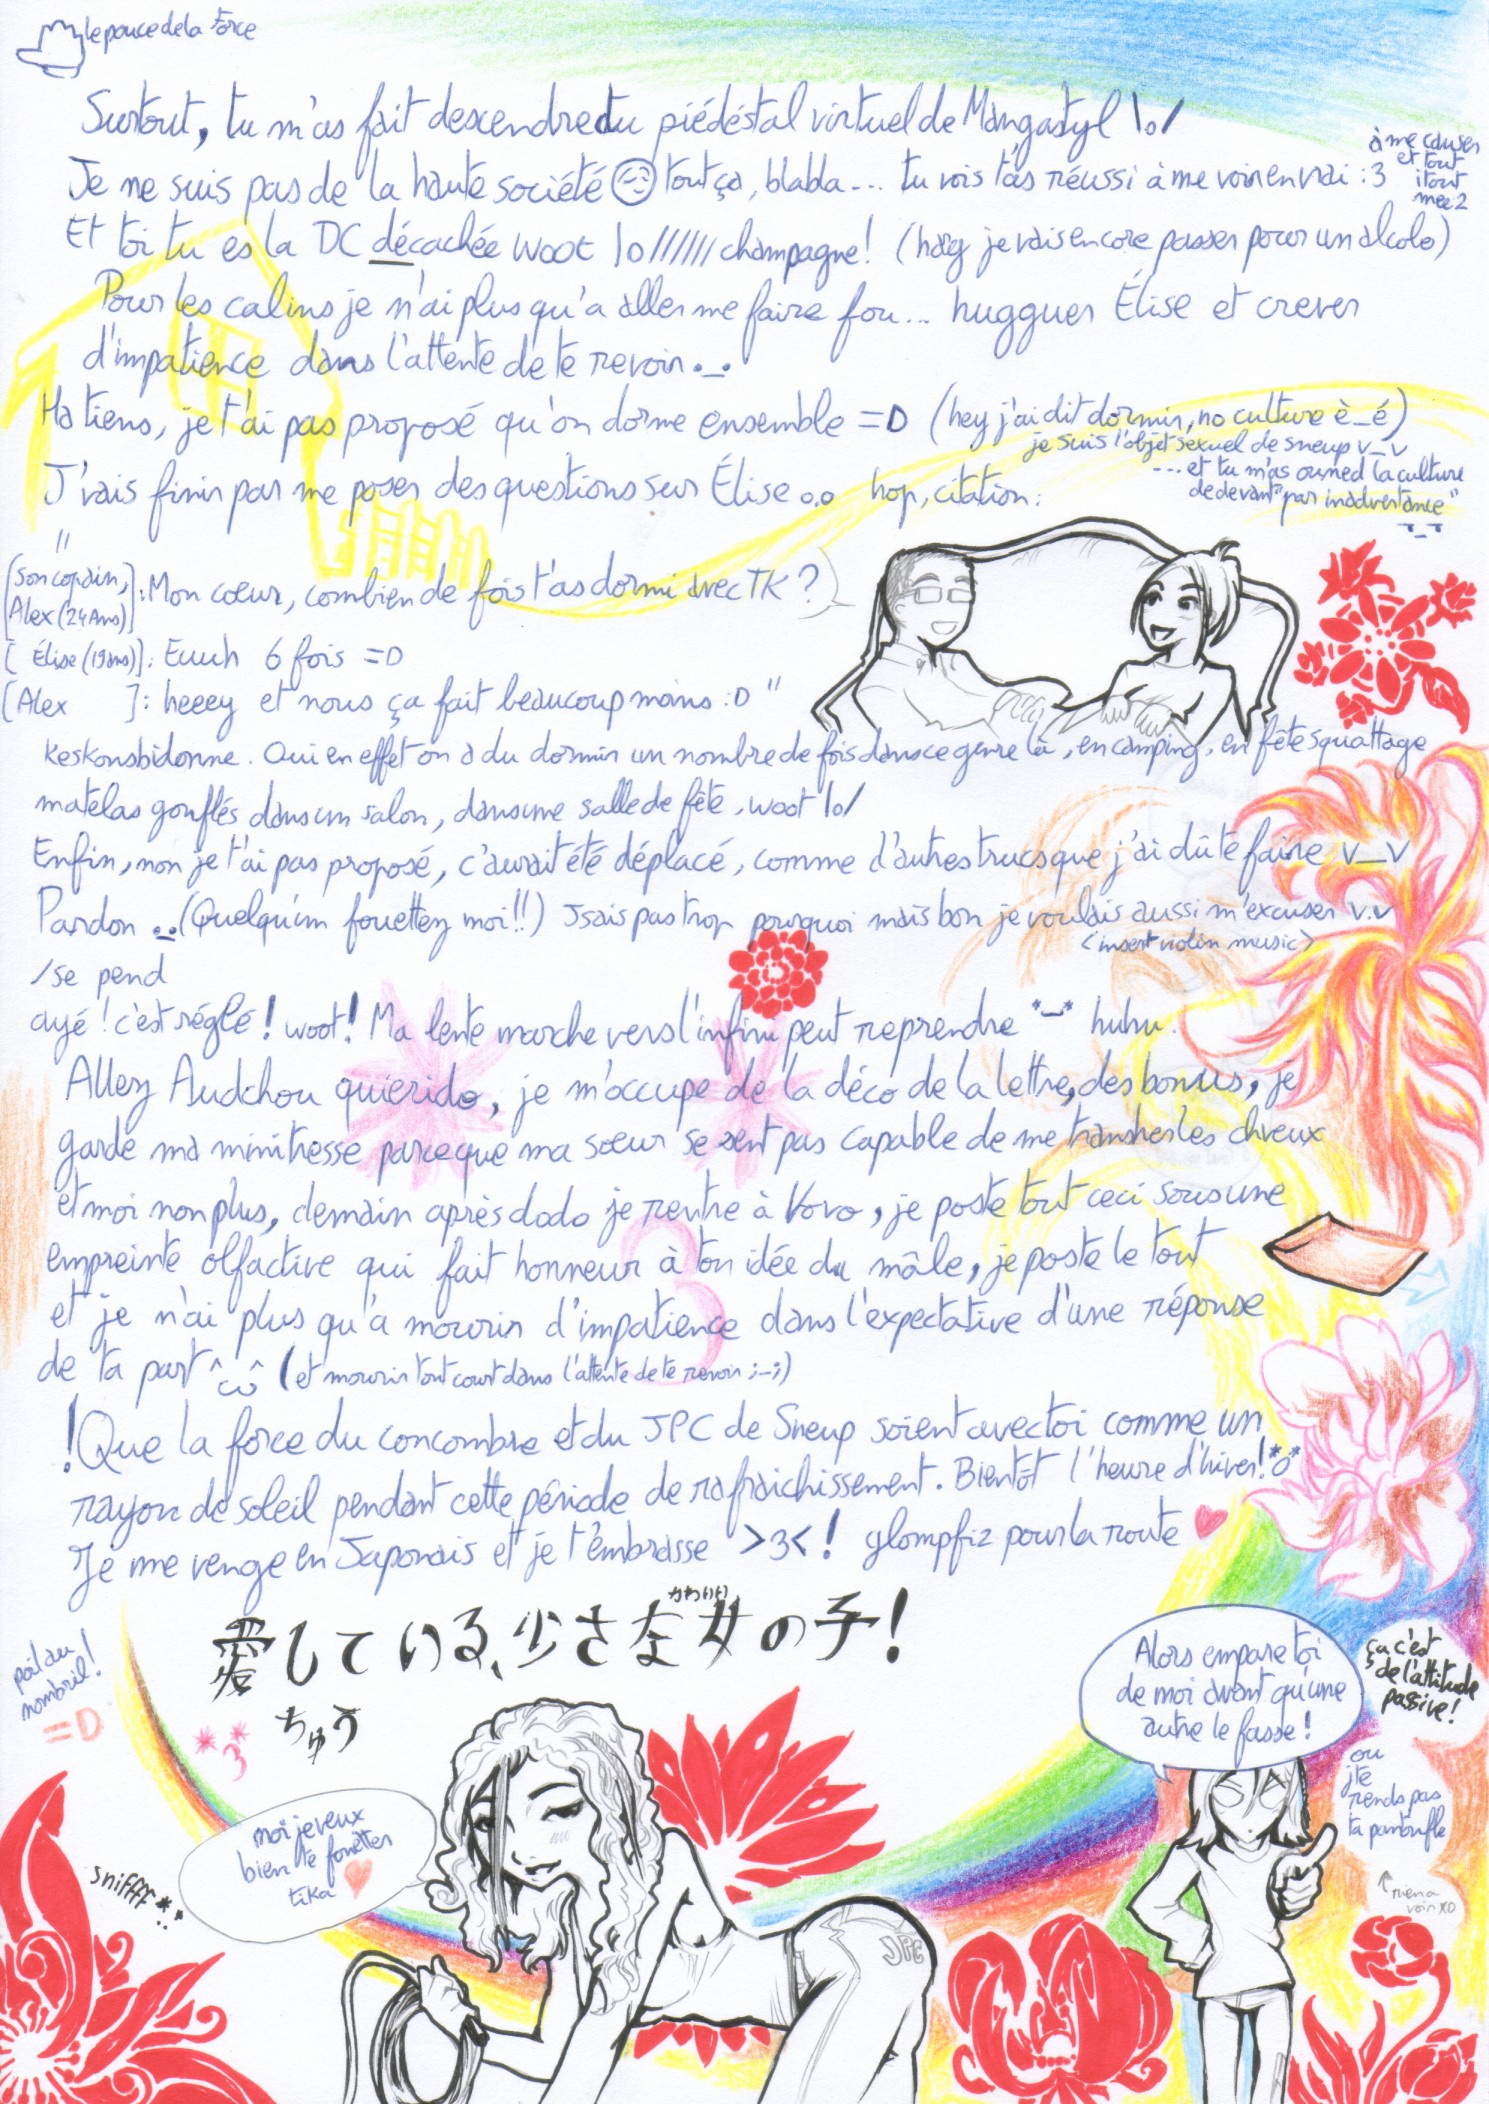 le pouce de la force
Surtout, tu m'as fait descendre du piédéstal virtuel de Mangastyl \o/
à me causer
et tout
itout
mee2
Je ne suis pas de la haute société tout ça, blabla... tu vois t'as réussi à me voir en vrai :3
Et toi tu es la DC décachée woot \o////// champagne! (harg je vais encore passer pour un alcolo)
Pour les calins je n'ai plus qu'a aller me faire fou... hugguer Élise et crever
d'impatience dans l'attente de te revoir ._.
Ha tiens, je t'ai pas proposé qu'on dorme ensemble =D (hey j'ai dit dormir, no culture è_é)
je suis l'objet sexuel de sneup v_v
... et tu m'as owned la culture
de devant "par inadvertance"
T_T
J'vais finir par me poser des questions sur Élise o.o hop, citation:
"
[Son copain, Alex (24 Ans)]: Mon cœur, combien de fois t'as dormi avec TK?
[Élise (19 ans)]: Euuh 6 fois =D
[Alex ]: heeey et nous ça fait beaucoup moins :D "
Keskonsbidonne. Oui en effet on a du dormir un nombre de fois dans ce genre là, en camping, en fête squattage
matelas gonflés dans un salon, dans une salle de fête, woot \o/
Enfin, non je t'ai pas proposé, c'aurait été déplacé, comme d'autres trucs que j'ai dû te faire v_v
Pardon ._. (Quelqu'un fouettez moi!!) Jsais pas trop pourquoi mais bon je voulais aussi m'excuser v.v
<insert violin music>
/se pend
ayé! c'est réglé! woot! Ma lente marche vers l'infini peut reprendre *~* huhu.
Allez Audchou quierido, je m'occupe de la déco de la lettre, des bonus, je
garde ma minitresse parce que ma sœur se sent pas capable de me trancher les chveux
et moi non plus, demain après dodo je rentre à Vovo, je poste tout ceci sous une
empreinte olfactive qui fait honneur à ton idée du mâle, je poste le tout
et je n'ai plus qu'a mourir d'impatience dans l'expectative d'une réponse
de ta part ^ω^ (et mourir tout court dans l'attente de te revoir ;_;)
!Que la force du concombre et du JPC de Sneup soient avec toi comme un
rayon de soleil pendant cette période de rafraichissement. Bientôt l'heure d'hiver! *o*
Je me venge en Japonais et je t'embrasse >3<! glompfiz pour la route
かわいい
愛している、少さな女の子!
ちゅう
poil au
nombril!
=D
*3*
Alors empare toi
de moi avant qu'une
autre le fasse!
ça c'est
de l'attitude
passive!
ou
jte
rends pas
ta pantoufle
rien a
voir XD
moi je veux
bien te fouetter
tika
sniffff*..
JPC